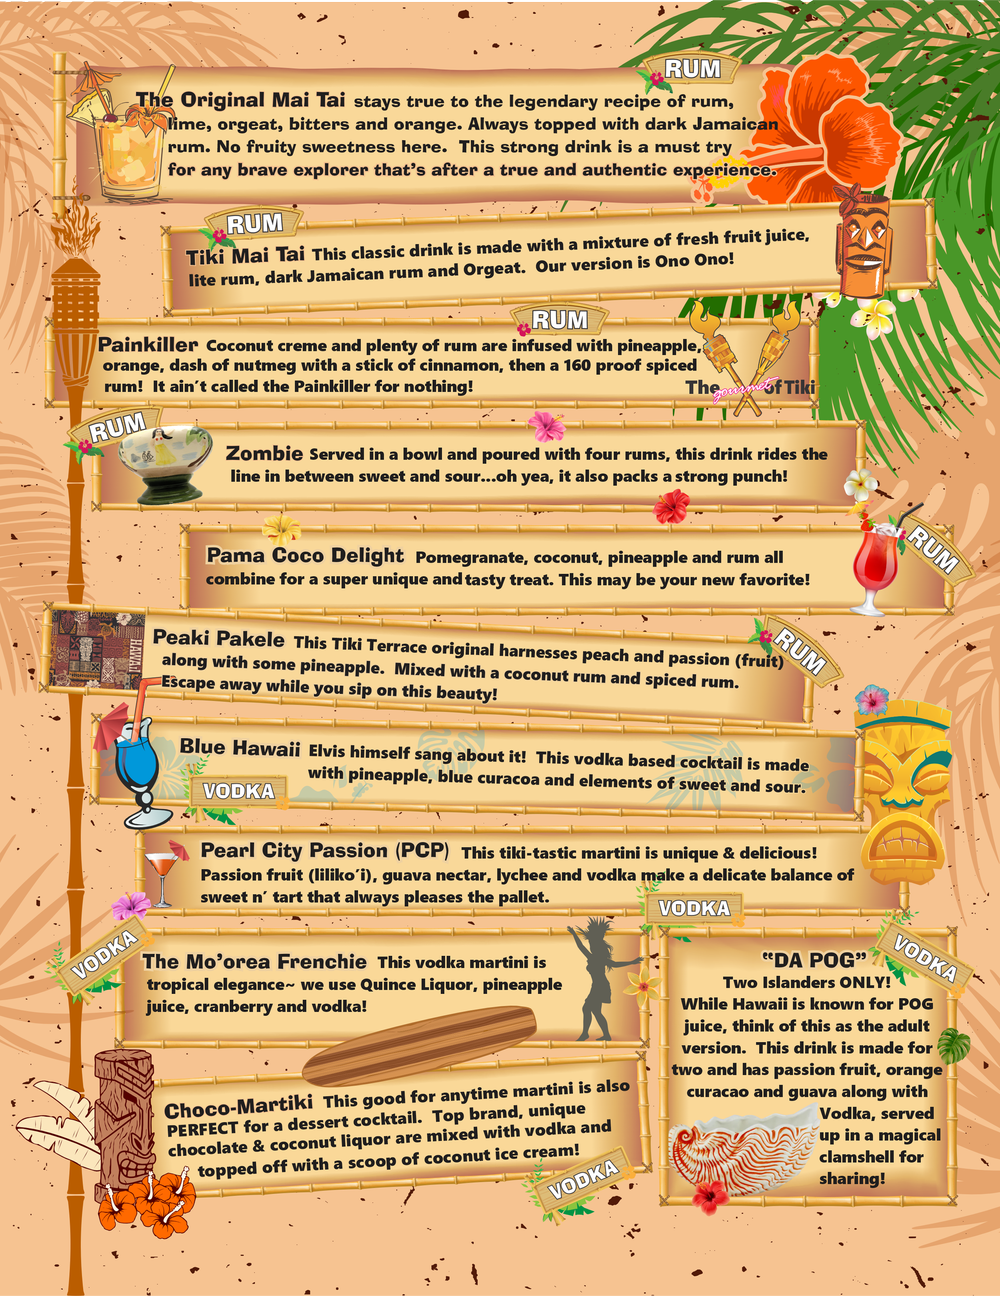 RUM
The Original Mai Tai stays true to the legendary recipe of rum,
lime, orgeat, bitters and orange. Always topped with dark Jamaican
rum. No fruity sweetness here. This strong drink is a must try
for any brave explorer that's after a true and authentic experience.
RUM
Tiki Mai Tai This classic drink is made with a mixture of fresh fruit juice,
lite rum, dark Jamaican rum and Orgeat. Our version is Ono Ono!
RUM
Painkiller Coconut creme and plenty of rum are infused with pineapple,
orange, dash of nutmeg with a stick of cinnamon, then a 160 proof spiced
rum! It ain´t called the Painkiller for nothing!
The gourmet of Tiki
RUM
Zombie Served in a bowl and poured with four rums, this drink rides the
line in between sweet and sour...oh yea, it also packs a strong punch!
RUM
Pama Coco Delight Pomegranate, coconut, pineapple and rum all
combine for a super unique and tasty treat. This may be your new favorite!
RUM
HAWAII
Peaki Pakele This Tiki Terrace original harnesses peach and passion (fruit)
along with some pineapple. Mixed with a coconut rum and spiced rum.
Escape away while you sip on this beauty!
Blue Hawaii Elvis himself sang about it! This vodka based cocktail is made
with pineapple, blue curacoa and elements of sweet and sour.
VODKA
Pearl City Passion (PCP) This tiki-tastic martini is unique & delicious!
Passion fruit (liliko´i), guava nectar, lychee and vodka make a delicate balance of
sweet n´ tart that always pleases the pallet.
VODKA
VODKA
The Mo'orea Frenchie This vodka martini is
tropical elegance~ we use Quince Liquor, pineapple
juice, cranberry and vodka!
Choco-Martiki This good for anytime martini is also
PERFECT for a dessert cocktail. Top brand, unique
chocolate & coconut liquor are mixed with vodka and
topped off with a scoop of coconut ice cream!
VODKA
VODKA
"DA POG"
Two Islanders ONLY!
While Hawaii is known for POG
juice, think of this as the adult
version. This drink is made for
two and has passion fruit, orange
curacao and guava along with
Vodka, served
up in a magical
clamshell for
sharing!